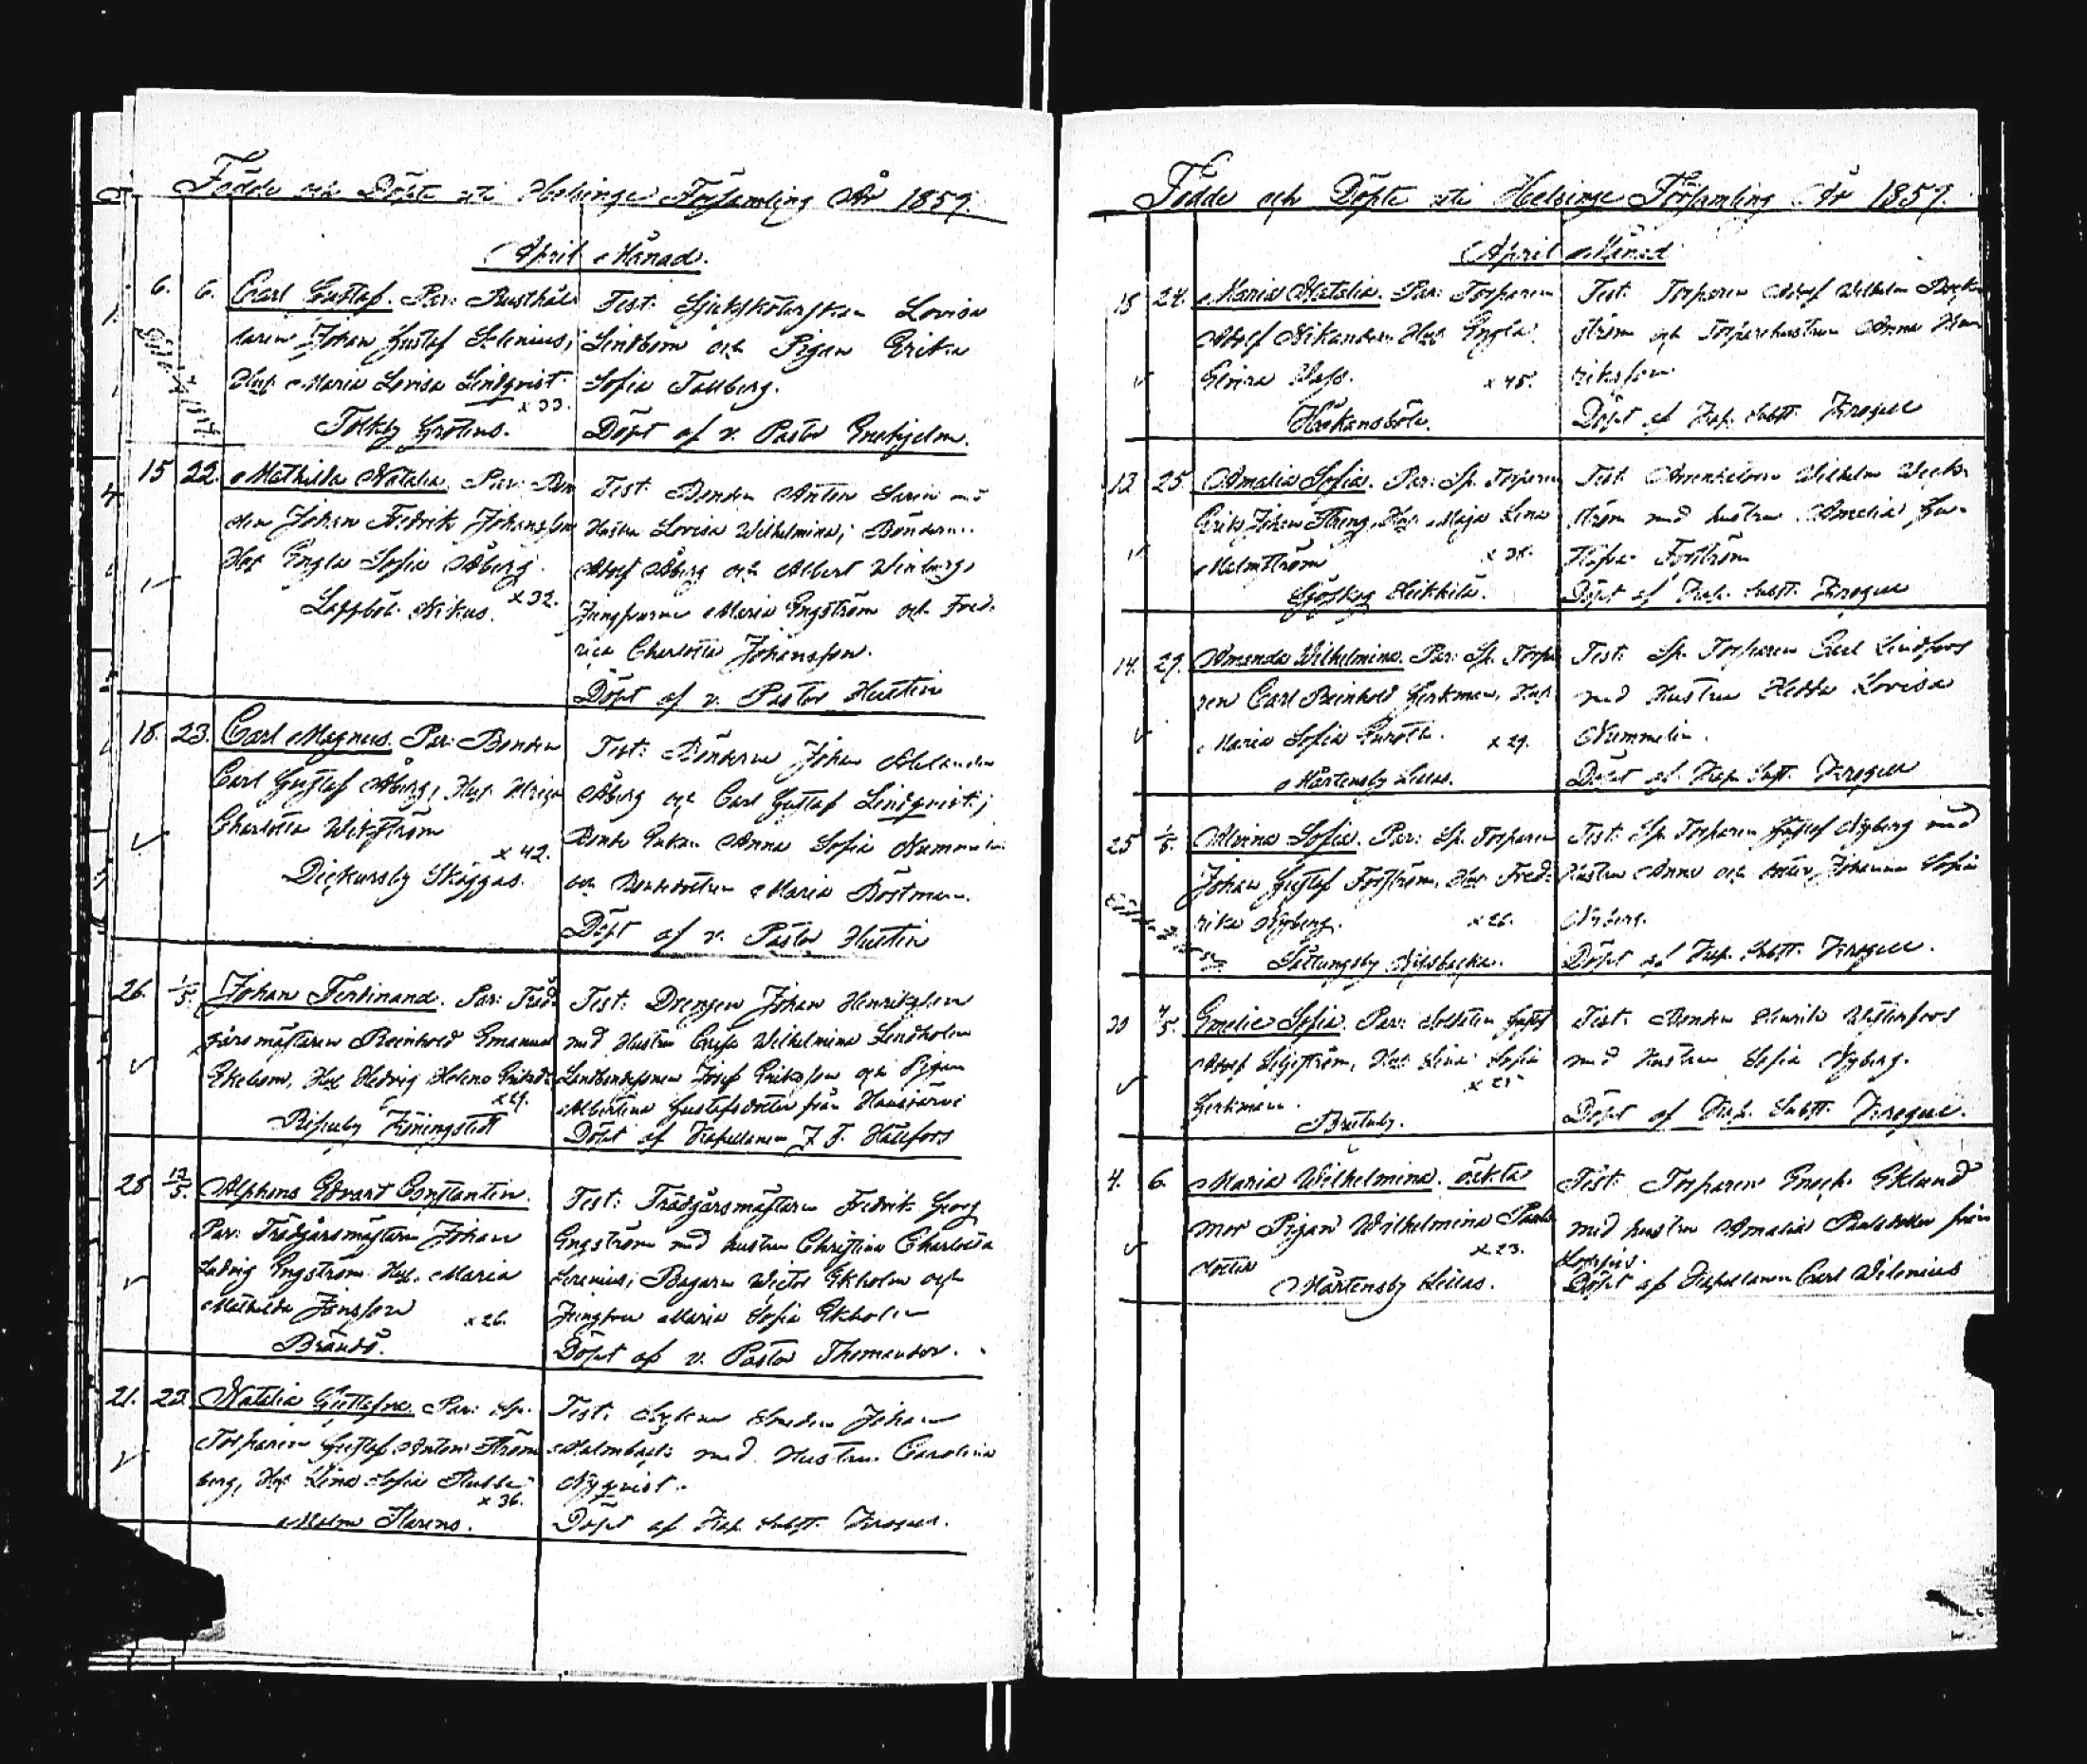 Födde och Döpte uti Helsinge Församling År 1859.
April Månad.
6. 6. Carl Gustaf. Par: Rusthål
laren Johan Gustaf Selenius;
Hust. Maria Lovisa Lindqvist.
x 33.
Tolkby Grotens.
Test: Sjuksköterskan Lovisa
Lindbom och Pigan Erika
Sofia Tallberg.
Döpt af v. Pastor Enehjelm.
15 22. Mathilda Natalia. Par: Bon
den Johan Fredrik Johansson
Hust Engla Sofia Åberg.
x 32.
Lappböle Nikus.
Test: Bonden Anton med
Hustru Lovisa Wilhelmina; Bönderne
Adolf Åberg och Albert Winberg,
Jungfrurne Maria Engström och Fred.
rica Charlotta Johansson.
Döpt af v. Pastor Hultin
18. 23. Carl Magnus. Par: Bonden
Carl Gustaf Åberg, Hust. Ulrica
Charlotta Wikström
x 42.
Dickursby Skäggas.
Test: Bönderne Johan
Åberg och Carl Gustaf Lindqvist;
Bonde Enkan Anna Sofia Nummelin
och Bondedottren Maria Böstman.
Döpt af v. Pastor Hultin
26. 1/5. Johan Ferdinand. Par: Träd
gårsmästaren Reinhold Emanuel
Ekebom, Hust Hedvig Helena
x 29.
Ripuby Köningstedt
Test: Drengen Johan Henriksson
med Hustru Wilhelmina Lindholm
Josef Eriksson och Pigan
Albertina Gustafsdotter från Hausjärvi
Döpt af Kapellanen J. F. Hällfors
28 13/5. Alphons Edvard Constantin.
Par: Trädgårsmästaren Johan
Ludvig Engström Hust. Maria
Mathilda Jönsson
x 26.
Brändö.
Test: Trädgårsmästaren Fredrik Georg
Engström med hustru Christina Charlotta
Serenius; Bagaren Victor Ekholm och
Jungfrun Maria Sofia Ekholm
Döpt af v. Pastor Themander.
21. 23. Natalia Gustafva. Par: Sp.
Torparen Gustaf Anton Ström
berg, Hust Lena Sofia Stubbe
x 36.
Malm Starens.
Test: Smeden Johan
Malmbäck med Hustru Carolina
Nyqvist.
Döpt af Kap. Subst. Krogell.
Födde och Döpte uti Helsinge Församling År 1859.
April Månad
15 24. Maria Natalia. Par: Torparen
Adolf Nikander Hust Engla
Elvira
x 45.
Håkansböle.
Test: Torparen Adolf Wilhelm
ström och Torparehustrun Anna Hen
riksson
Döpt af Kap. Subst. Krogell
13 25. Amalia Sofia. Par: Sp. Torparen
Erik Johan Streng, Hust. Maja Lena
Malmström
Sjöskog Heikkilä.
Test: Wilhelm Weck
ström med hustru Amelia Gu
stafva Forström
Döpt af Kap. Subst. Krogell
14. 29. Amanda Wilhelmina. Par: Sp. Torpa
ren Carl Reinhold Gerkman, Hust.
Maria Sofia
x 29.
Mårtensby Lillas.
Test: Sp. Torparen Carl Lindfors
med Hustru Hedda Lovisa
Nummelin.
Döpt af Kap. Subst. Krogell
25 1/5. Alvina Sofia. Par: Sp. Torparen
Johan Gustaf Forström, Hust Fred
rika Nyberg.
x 26.
Sottungsby Nissbacka.
Test: Sp. Torparen Gustaf Nyberg med
Hustru Anna och Johanna Sofia
Nyberg.
Döpt af Kap. Subst. Krogell.
30 Emelie Sofia. Par: Soldaten Gustaf
Adolf Hust Lina Sofia
Gerkman.
Test: Bonden Henrik Westerfors
med Hustru Sofia Nyberg.
Döpt af Kap. Subst. Krogell.
4. 6. Maria Wilhelmina. oäkta
mor Pigan Wilhelmina Pauls
dotter
x 23.
Mårtensby Lillas.
Test: Torparen Enoch Eklund
med hustru Amalia Paulsdotter från
Loppis.
Döpt af Kapellanen Carl Wilenius